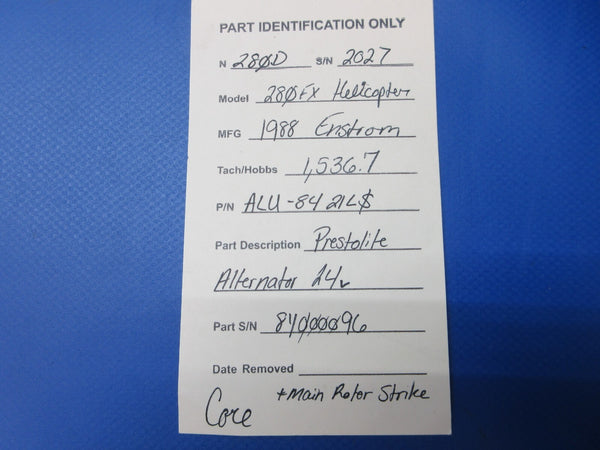 PART IDENTIFICATION ONLY
N 280D S/N 2027
Model 280FX Helicopter
MFG 1988 Enstrom
Tach/Hobbs 1,536.7
P/N ALU-8421L$
Part Description Prestolite
Alternator 24v
Part S/N 84000096
Date Removed
+Main Rotor Strike
Core